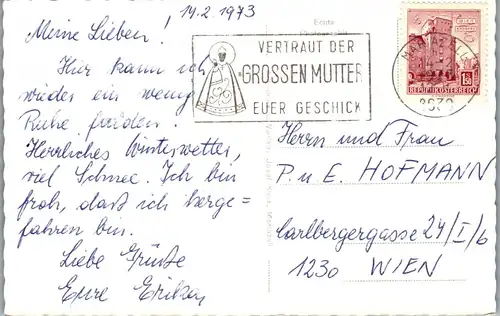 14.2.1973
Meine Lieben!
Hier kann ich
wieder ein wenig
Ruhe finden.
Herrliches Winterwetter,
viel Schnee. Ich bin
froh, daß ich herge=
fahren bin.
Liebe Grüße
Eure Erika
Echte
VERTRAUT DER
GROSSEN MUTTER
EUER GESCHICK
REPUBLIK ÖSTERREICH
1.50
8630
Herrn und Frau
P. u. E. HOFMANN
Carlbergergasse 24/I/6
1230 WIEN